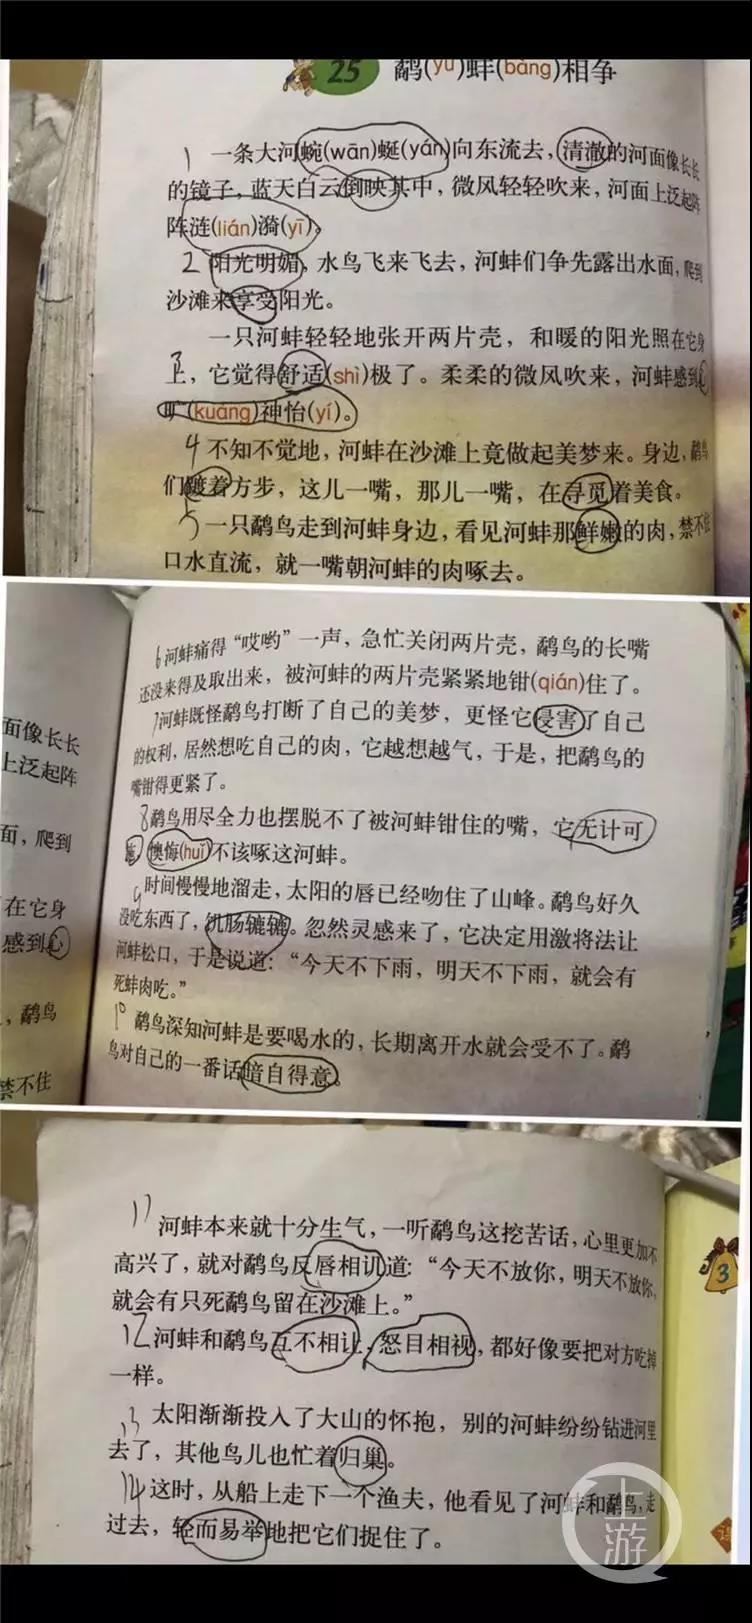 25 鹬(yù)蚌(bàng)相争
1 一条大河蜿(wān)蜒(yán)向东流去，清澈的河面像长长
的镜子，蓝天白云倒映其中，微风轻轻吹来，河面上泛起阵
阵涟(lián)漪(yī)。
2 阳光明媚，水鸟飞来飞去，河蚌们争先露出水面，爬到
沙滩来享受阳光。
一只河蚌轻轻地张开两片壳，和暖的阳光照在它身
3 上，它觉得舒适(shì)极了。柔柔的微风吹来，河蚌感到心
旷(kuàng)神怡(yí)。
4 不知不觉地，河蚌在沙滩上竟做起美梦来。身边，鹬鸟
们踱着方步，这儿一嘴，那儿一嘴，在寻觅着美食。
5 一只鹬鸟走到河蚌身边，看见河蚌那鲜嫩的肉，禁不住
口水直流，就一嘴朝河蚌的肉啄去。
面像长长
上泛起阵
面，爬到
在它身
感到心
，鹬鸟
禁不住
6 河蚌痛得“哎哟”一声，急忙关闭两片壳，鹬鸟的长嘴
还没来得及取出来，被河蚌的两片壳紧紧地钳(qián)住了。
7 河蚌既怪鹬鸟打断了自己的美梦，更怪它侵害了自己
的权利，居然想吃自己的肉，它越想越气，于是，把鹬鸟的
嘴钳得更紧了。
8 鹬鸟用尽全力也摆脱不了被河蚌钳住的嘴，它无计可
施，懊悔(huǐ)不该啄这河蚌。
9 时间慢慢地溜走，太阳的唇已经吻住了山峰。鹬鸟好久
没吃东西了，饥肠辘辘。忽然灵感来了，它决定用激将法让
河蚌松口，于是说道：“今天不下雨，明天不下雨，就会有
死蚌肉吃。”
10 鹬鸟深知河蚌是要喝水的，长期离开水就会受不了。鹬
鸟对自己的一番话暗自得意。
11 河蚌本来就十分生气，一听鹬鸟这挖苦话，心里更加不
高兴了，就对鹬鸟反唇相讥道：“今天不放你，明天不放你，
就会有只死鹬鸟留在沙滩上。”
12 河蚌和鹬鸟互不相让，怒目相视，都好像要把对方吃掉
一样。
13 太阳渐渐投入了大山的怀抱，别的河蚌纷纷钻进河里
去了，其他鸟儿也忙着归巢。
14 这时，从船上走下一个渔夫，他看见了河蚌和鹬鸟，走
过去，轻而易举地把它们捉住了。
3
上游